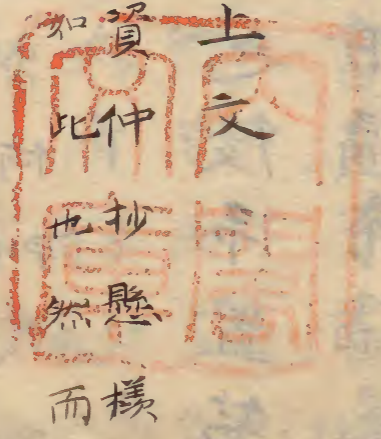 上文
資仲抄懸様
如此也然而